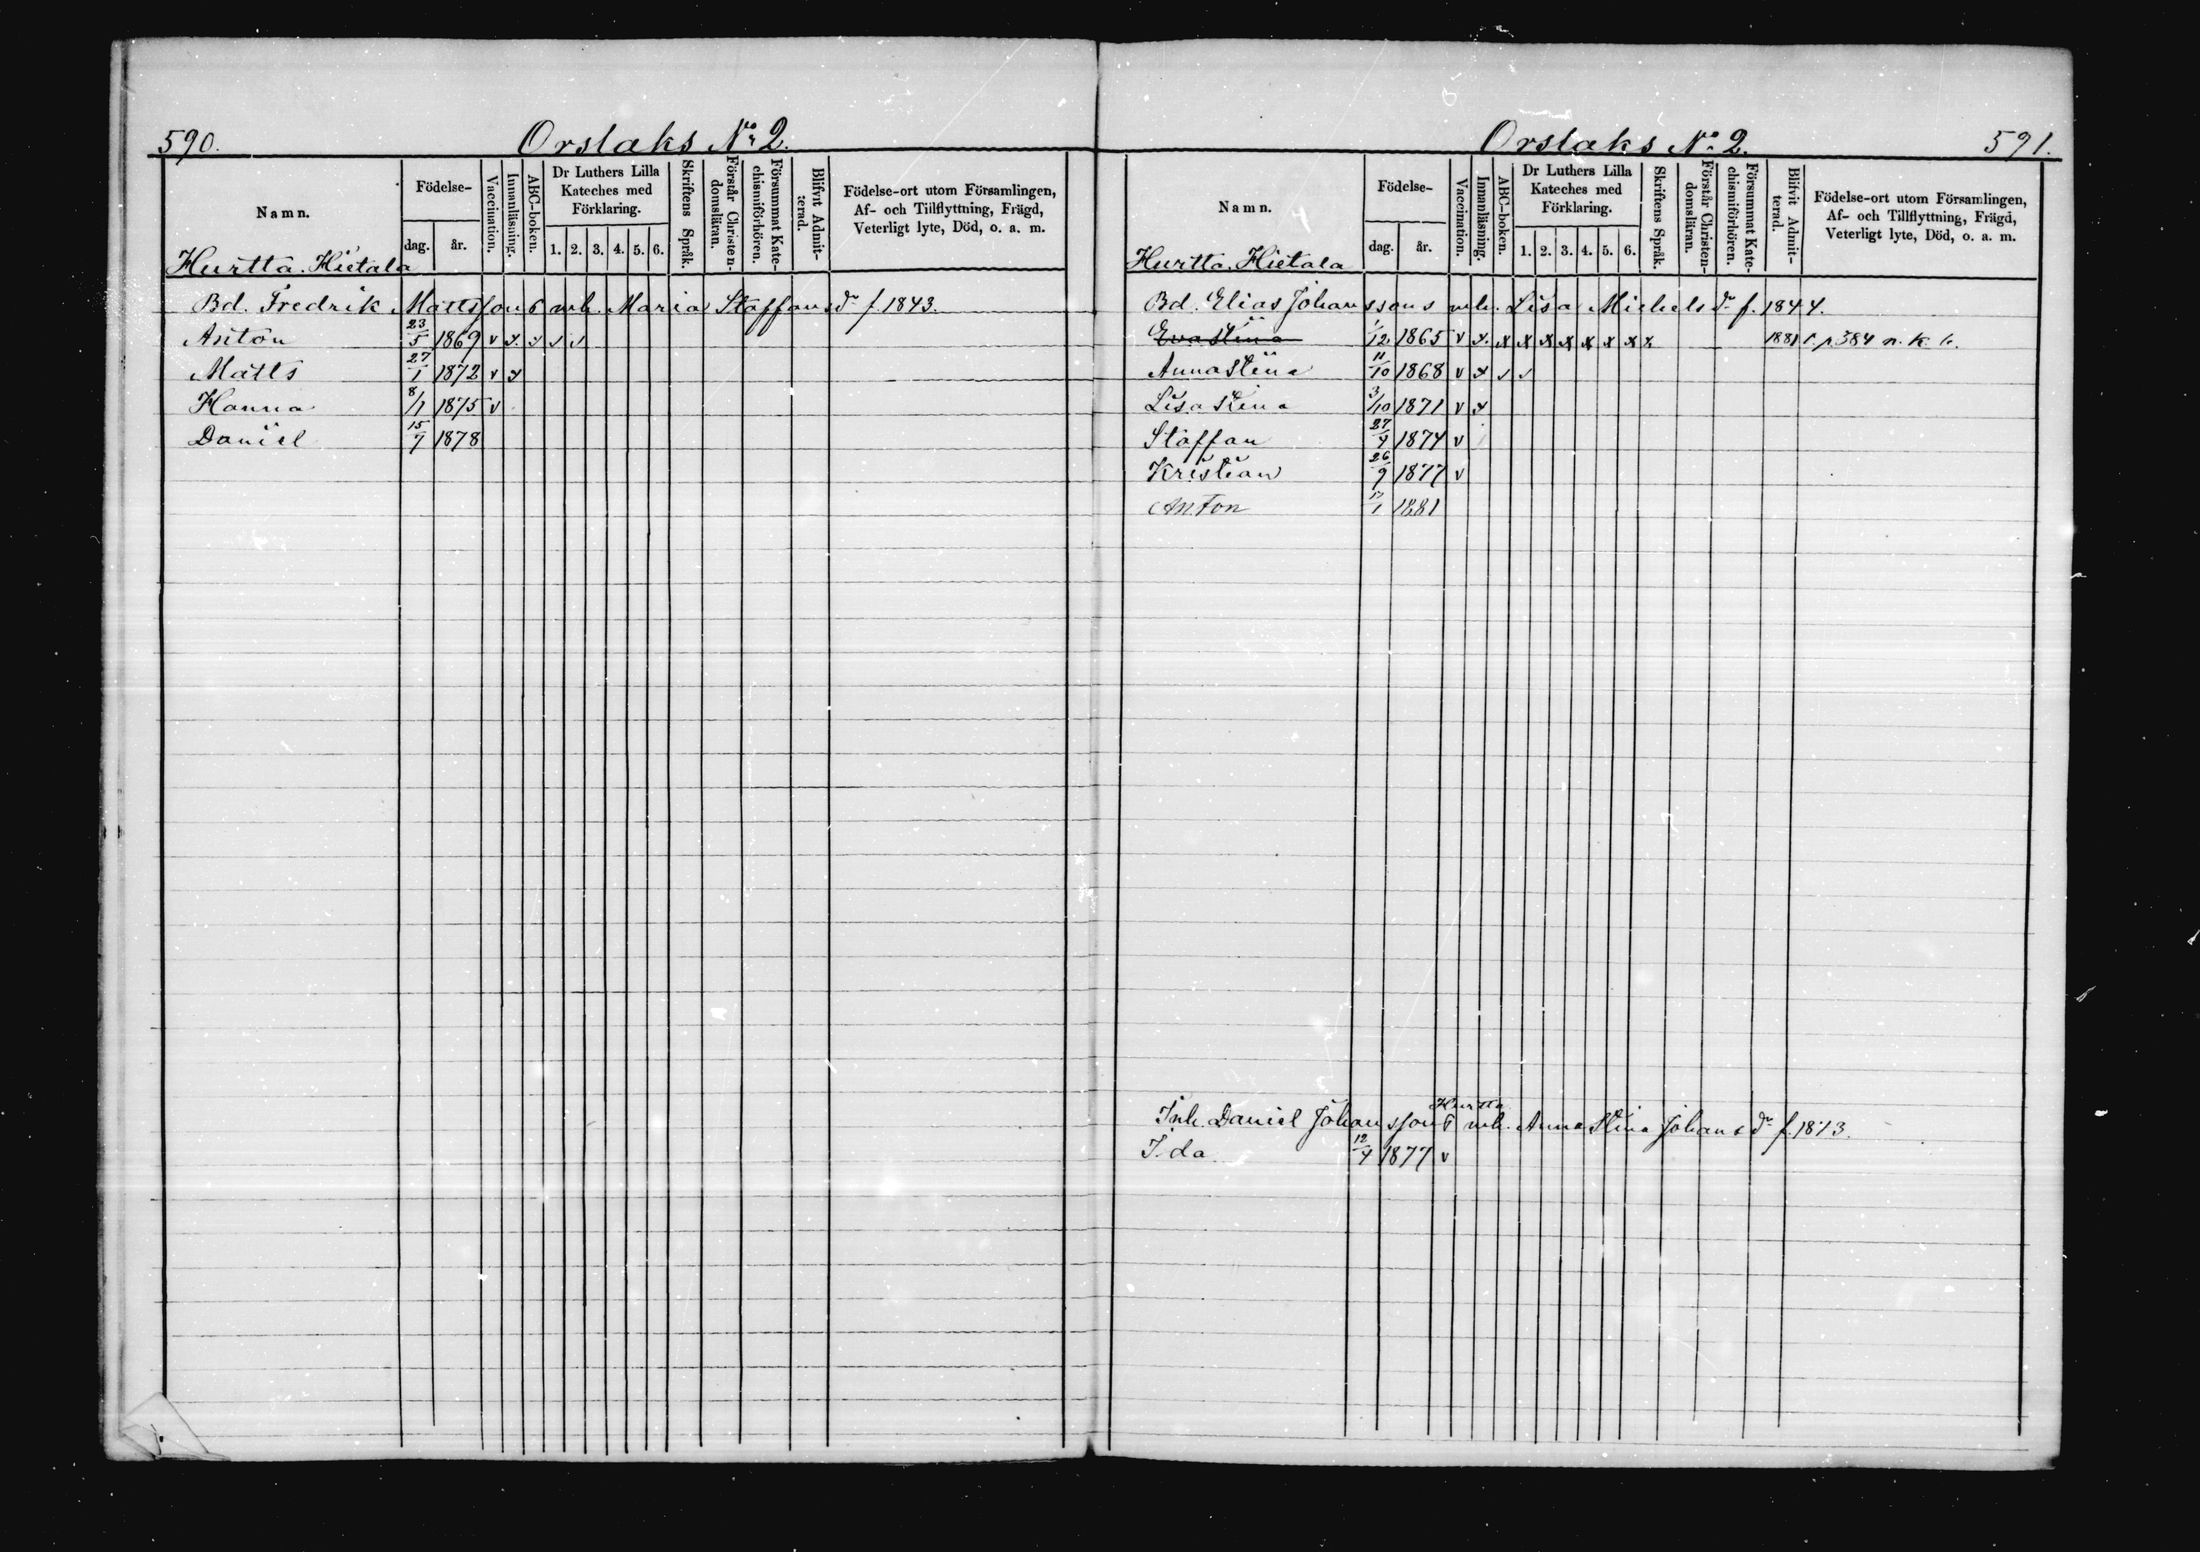 590.
Orslaks No 2.
Namn.
Födelse-
dag.
år.
Vaccination.
Innanläsning.
ABC-boken.
Dr Luthers Lilla Kateches med Förklaring.
1. 2. 3. 4. 5. 6.
Skriftens Språk.
Förstår Christendomsläran.
Försummat Katechismiförhören.
Blifvit Admitterad.
Födelse-ort utom Församlingen,
Af- och Tillflyttning, Frägd,
Veterligt lyte, Död, o. a. m.
Hurtta. Hietala
Bd. Fredrik Mattssons mh. Maria Staffansdr f. 1843.
Anton 23/5 1869 v x v v v
Matts 27/1 1872 v x
Hanna 8/1 1875 v
Daniel 15/7 1878
Orslaks No 2.
591.
Namn.
Födelse-
dag.
år.
Vaccination.
Innanläsning.
ABC-boken.
Dr Luthers Lilla Kateches med Förklaring.
1. 2. 3. 4. 5. 6.
Skriftens Språk.
Förstår Christendomsläran.
Försummat Katechismiförhören.
Blifvit Admitterad.
Födelse-ort utom Församlingen,
Af- och Tillflyttning, Frägd,
Veterligt lyte, Död, o. a. m.
Hurtta. Hietala
Bd. Elias Johanssons mh. Lisa Michelsdr f. 1844.
Eva Stina 1/12 1865 v x x x x x x x x x 1881 p 384 n. k. b.
Anna Stina 11/10 1868 v x v v
Lisa Stina 3/10 1871 v x
Staffan 27/4 1874 v
Kristian 26/9 1877 v
Anton 1881
Hurtta
Inh. Daniel Johanssons mh. Anna Stina Johansdr f. 1873.
Ida 12/4 1877 v